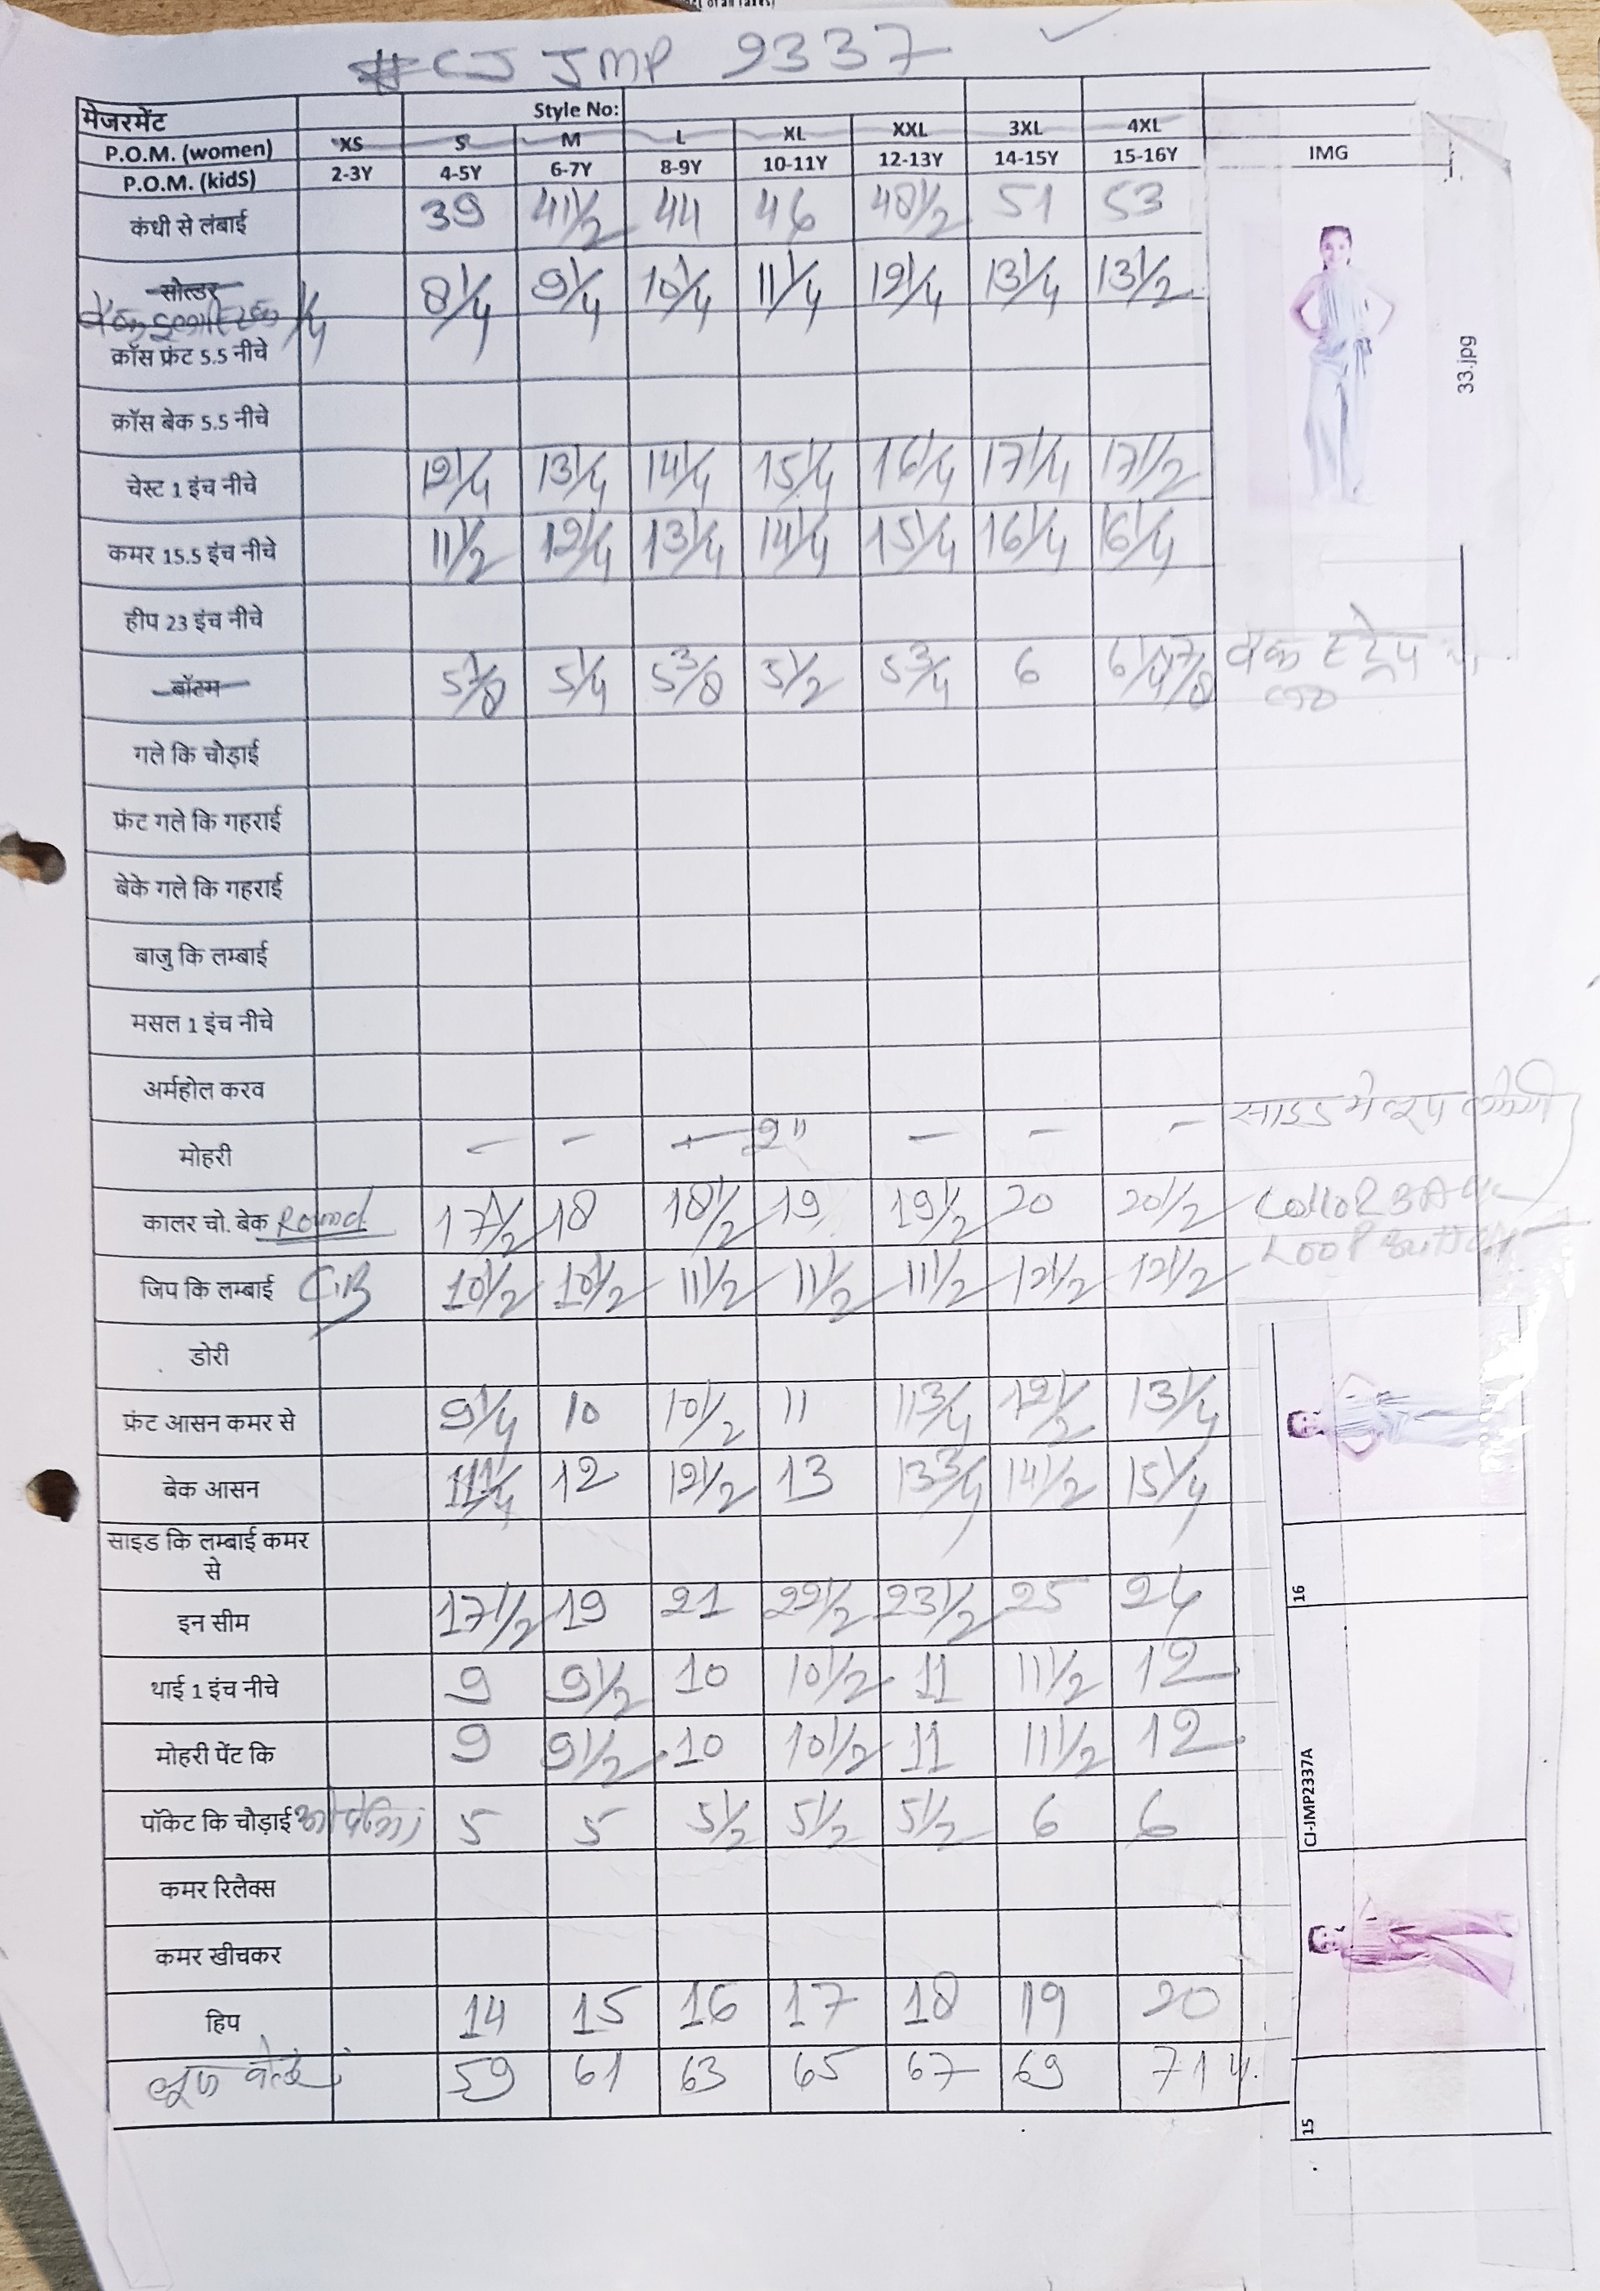 # CJ JMP 2337
मेजरमेंट Style No:
P.O.M. (women) XS S M L XL XXL 3XL 4XL
P.O.M. (kidS) 2-3Y 4-5Y 6-7Y 8-9Y 10-11Y 12-13Y 14-15Y 15-16Y IMG
कंधी से लंबाई 39 41 1/2 44 46 48 1/2 51 53
सोल्डर 8 1/4 9 1/4 10 1/4 11 1/4 12 1/4 13 1/4 13 1/2
क्रॉस फ्रंट 5.5 नीचे
33.jpg
क्रॉस बेक 5.5 नीचे
चेस्ट 1 इंच नीचे 12 1/4 13 1/4 14 1/4 15 1/4 16 1/4 17 1/4 17 1/2
कमर 15.5 इंच नीचे 11 1/2 12 1/4 13 1/4 14 1/4 15 1/4 16 1/4 16 1/4
हीप 23 इंच नीचे
बॉटम 5 1/4 5 3/8 5 1/2 5 3/4 6 बेक स्ट्रेप
गले कि चोड़ाई
फ्रंट गले कि गहराई
बेके गले कि गहराई
बाजु कि लम्बाई
मसल 1 इंच नीचे
अर्महोल करव
मोहरी - - - 2" - - - साइड मे लूप लगेगी
कालर चो. बेक Round 17 1/2 18 18 1/2 19 19 1/2 20 20 1/2 COLLOR BACK
LOOP BUTTON
जिप कि लम्बाई C.B 10 1/2 10 1/2 11 1/2 11 1/2 11 1/2 12 1/2 12 1/2
डोरी
फ्रंट आसन कमर से 9 1/4 10 10 1/2 11 11 3/4 12 1/2 13 1/4
बेक आसन 11 1/4 12 12 1/2 13 13 3/4 14 1/2 15 1/4
साइड कि लम्बाई कमर
से
16
इन सीम 17 1/2 19 21 22 1/2 23 1/2 25
थाई 1 इंच नीचे 9 9 1/2 10 10 1/2 11 11 1/2 12
मोहरी पेंट कि 9 9 1/2 10 10 1/2 11 11 1/2 12
CJ-JMP2337A
पॉकेट कि चौड़ाई 5 5 5 1/2 5 1/2 5 1/2 6 6
कमर रिलैक्स
कमर खीचकर
हिप 14 15 16 17 18 19 20
लूज बेल्ट 59 61 63 65 67 69 71
15